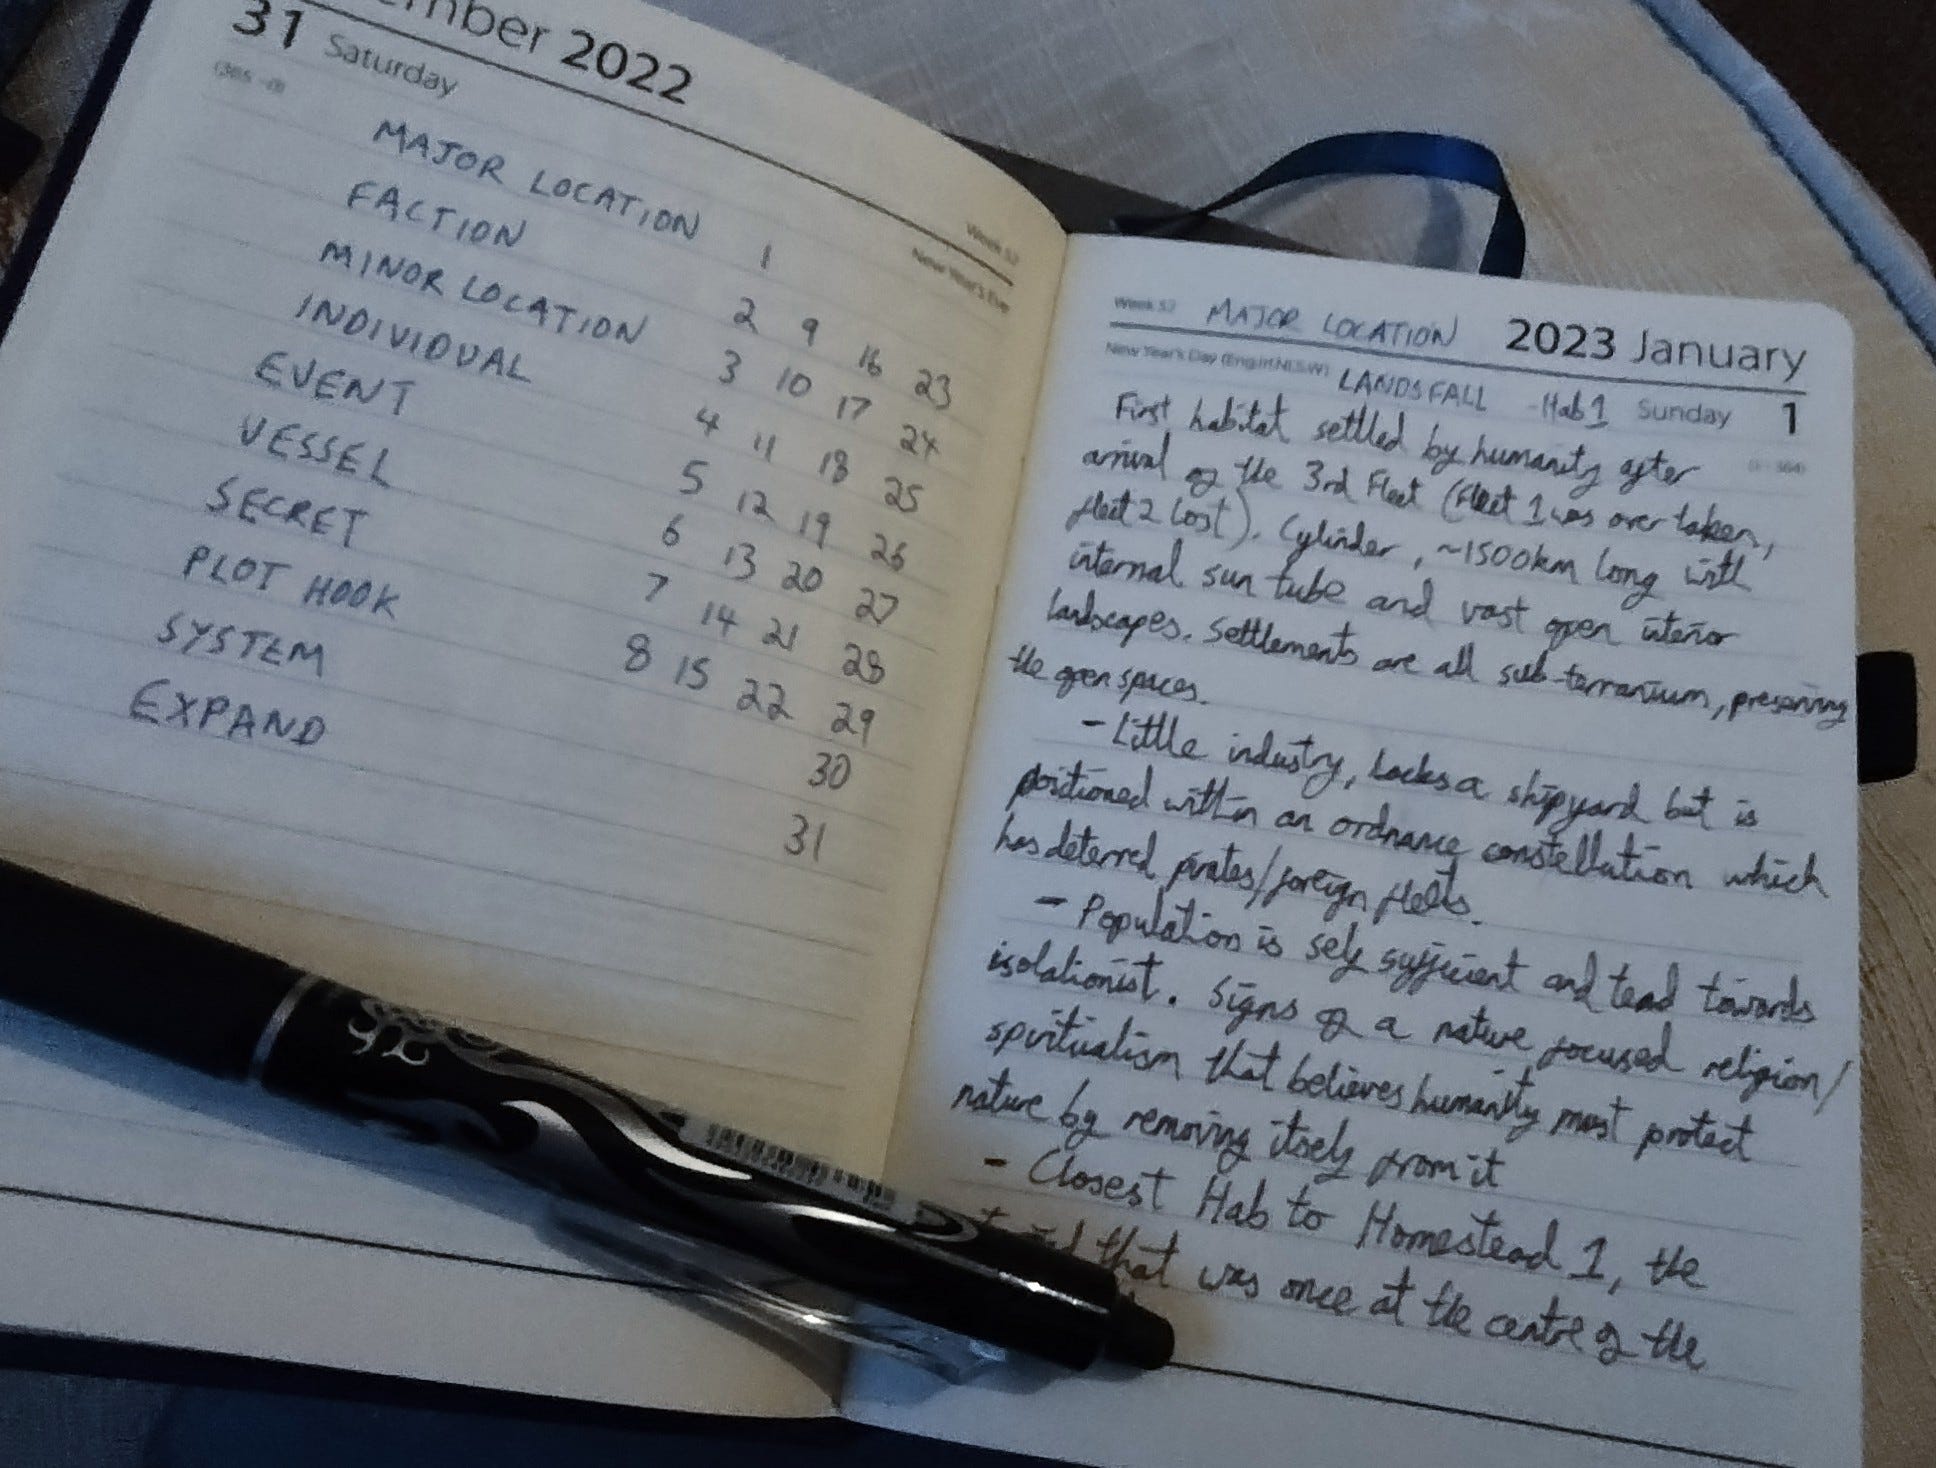 ember 2022
31 Saturday
Week 52
New Year's Eve
MAJOR LOCATION 1
FACTION 2 9 16 23
MINOR LOCATION 3 10 17 24
INDIVIDUAL 4 11 18 25
EVENT 5 12 19 26
VESSEL 6 13 20 27
SECRET 7 14 21 28
PLOT HOOK 8 15 22 29
SYSTEM 30
EXPAND 31
Week 52 MAJOR LOCATION 2023 January
New Year's Day LANDSFALL - Hab 1 Sunday 1
First habitat settled by humanity after
arrival of the 3rd Fleet (Fleet 1 was over taken,
fleet 2 lost). Cylinder, ~1500km long with
internal sun tube and vast open interior
landscapes. Settlements are all sub-terranium, preserving
the open spaces.
- Little industry, lacks a shipyard but is
positioned within an ordnance constellation which
has deterred pirates/foreign fleets.
- Population is self sufficient and tend towards
isolationist. Signs of a nature focused religion/
spiritualism that believes humanity must protect
nature by removing itself from it
- Closest Hab to Homestead 1, the
that was once at the centre of the